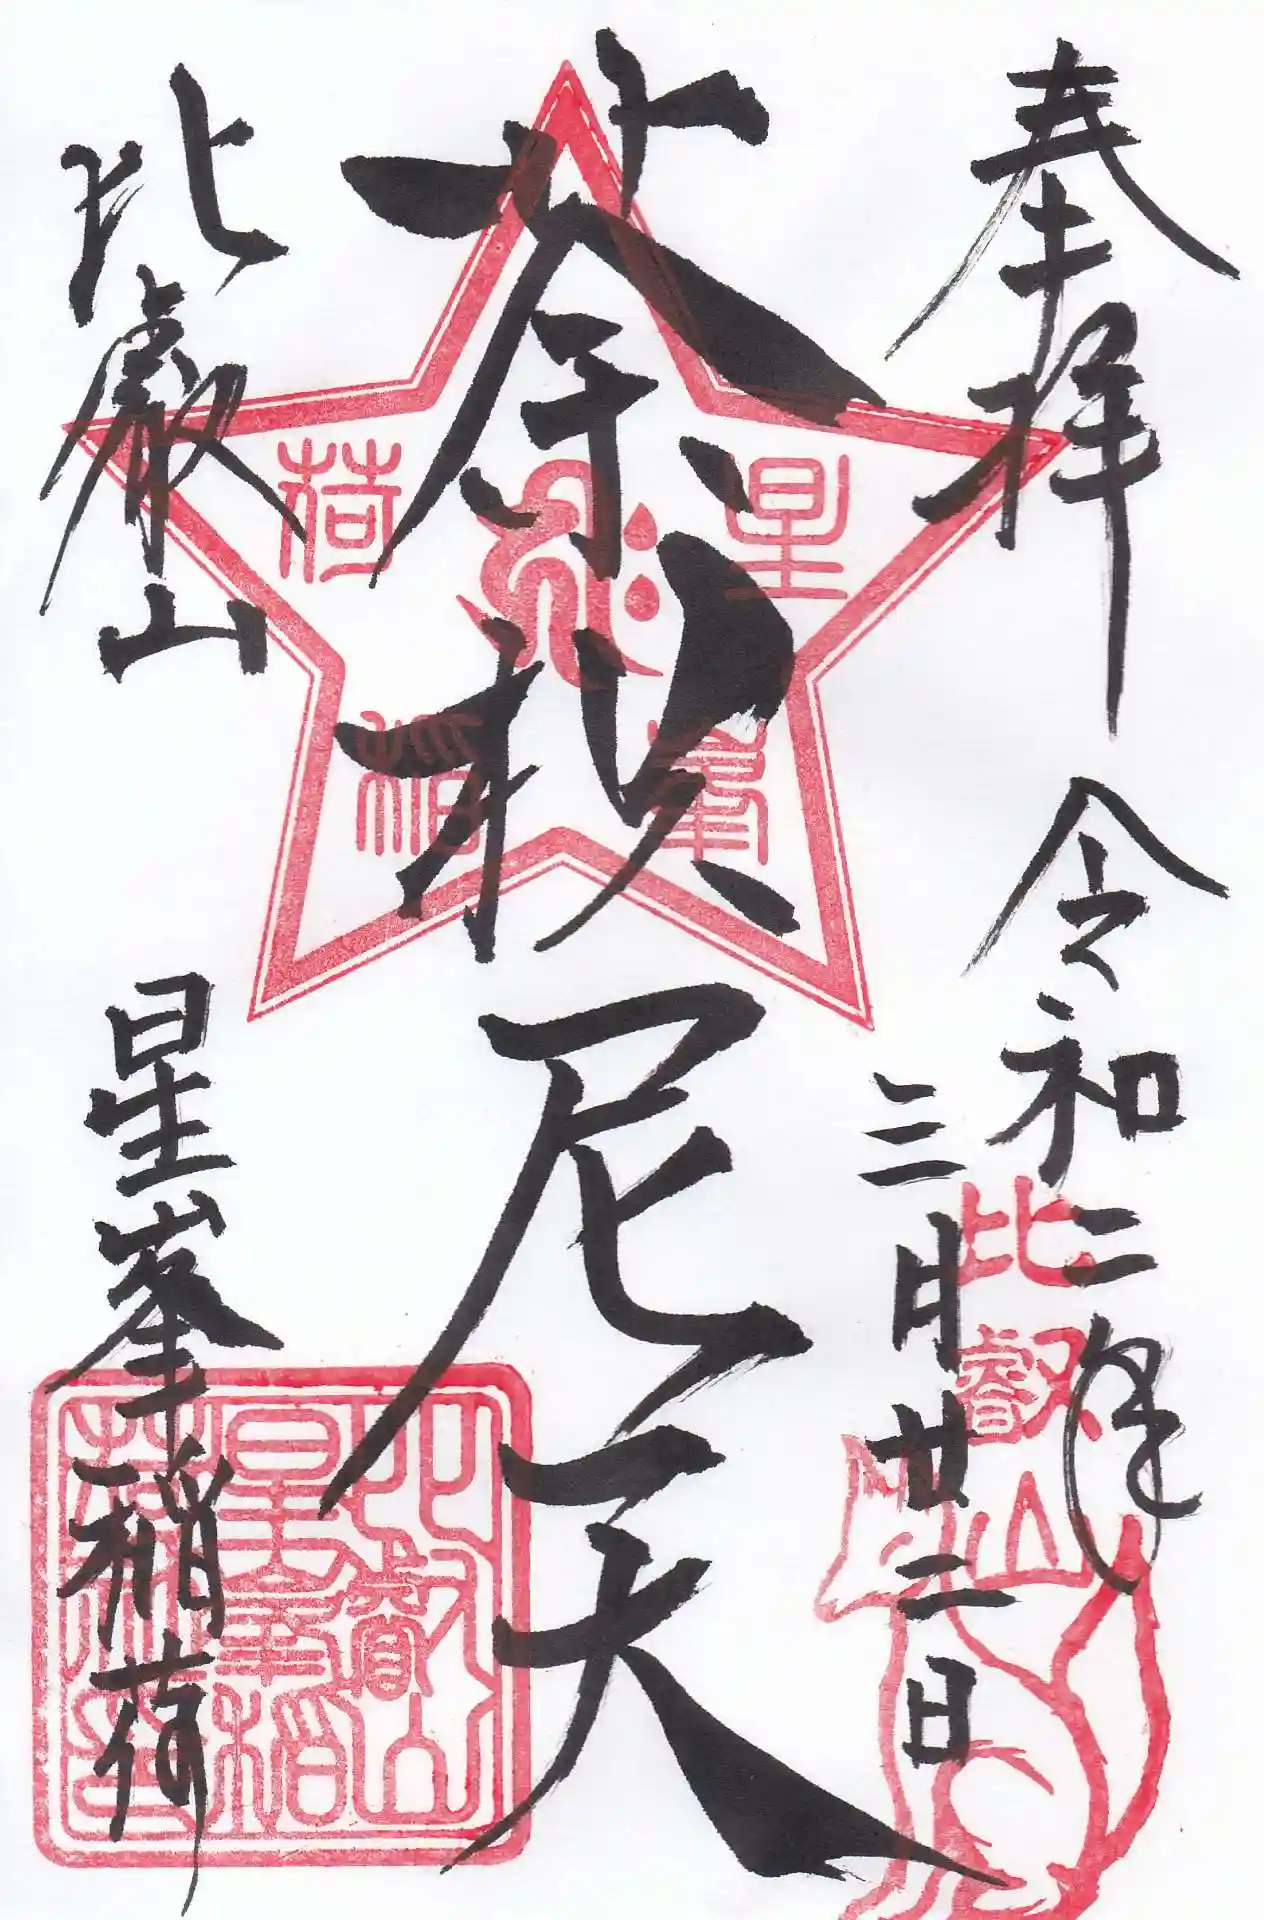 奉拝
令和二年
三月廿二日
荼枳尼天
比叡山
星峯稲荷
星峯稲荷
比叡山
比叡山
星峯稲
荷